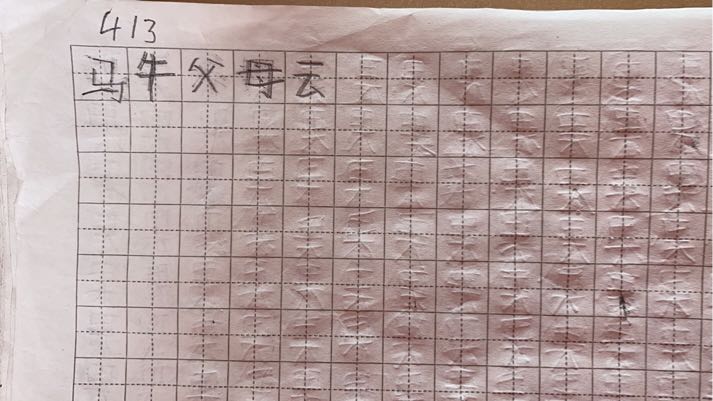 413
马牛父母云